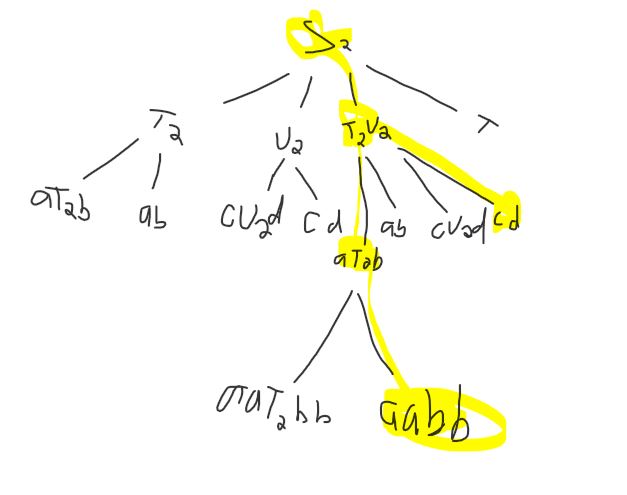 S₂
T₂ U₂ T₂U₂ T
aT₂b ab cU₂d cd ab cU₂d cd
aT₂b
aaT₂bb aabb